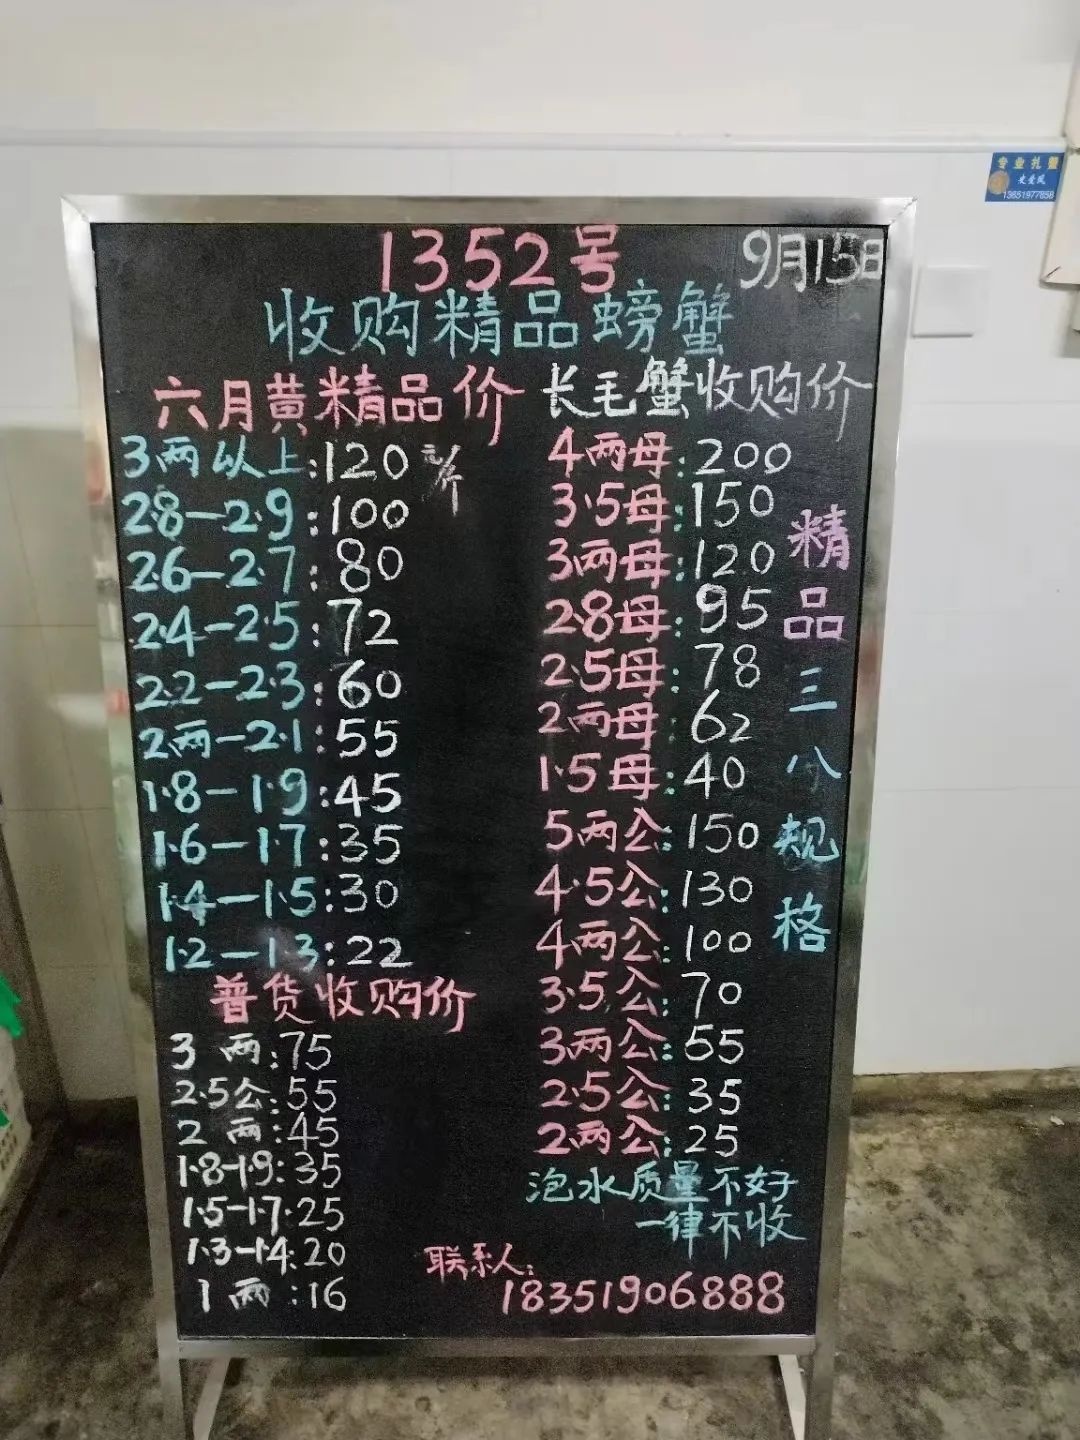 专业扎蟹
史爱凤
13651977858
1352号
9月15日
收购精品螃蟹
六月黄精品价
3两以上:120元/斤
2.8—2.9:100
2.6—2.7:80
2.4—2.5:72
2.2—2.3:60
2两—2.1:55
1.8—1.9:45
1.6—1.7:35
1.4—1.5:30
1.2—1.3:22
普货收购价
3两:75
2.5公:55
2两:45
1.8-1.9:35
1.5-1.7:25
1.3-1.4:20
1两:16
长毛蟹收购价
4两母:200
3.5母:150
3两母:120
2.8母:95
2.5母:78
2两母:62
1.5母:40
5两公:150
4.5公:130
4两公:100
3.5公:70
3两公:55
2.5公:35
2两公:25
精品三八规格
泡水质量不好
一律不收
联系人:
18351906888